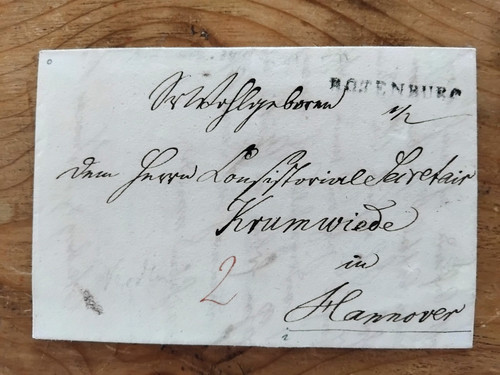 ROTENBURG
Sr Wohlgeboren
1/2
dem Herrn Consistorial Secretair
Krumwiede
2
in
Hannover